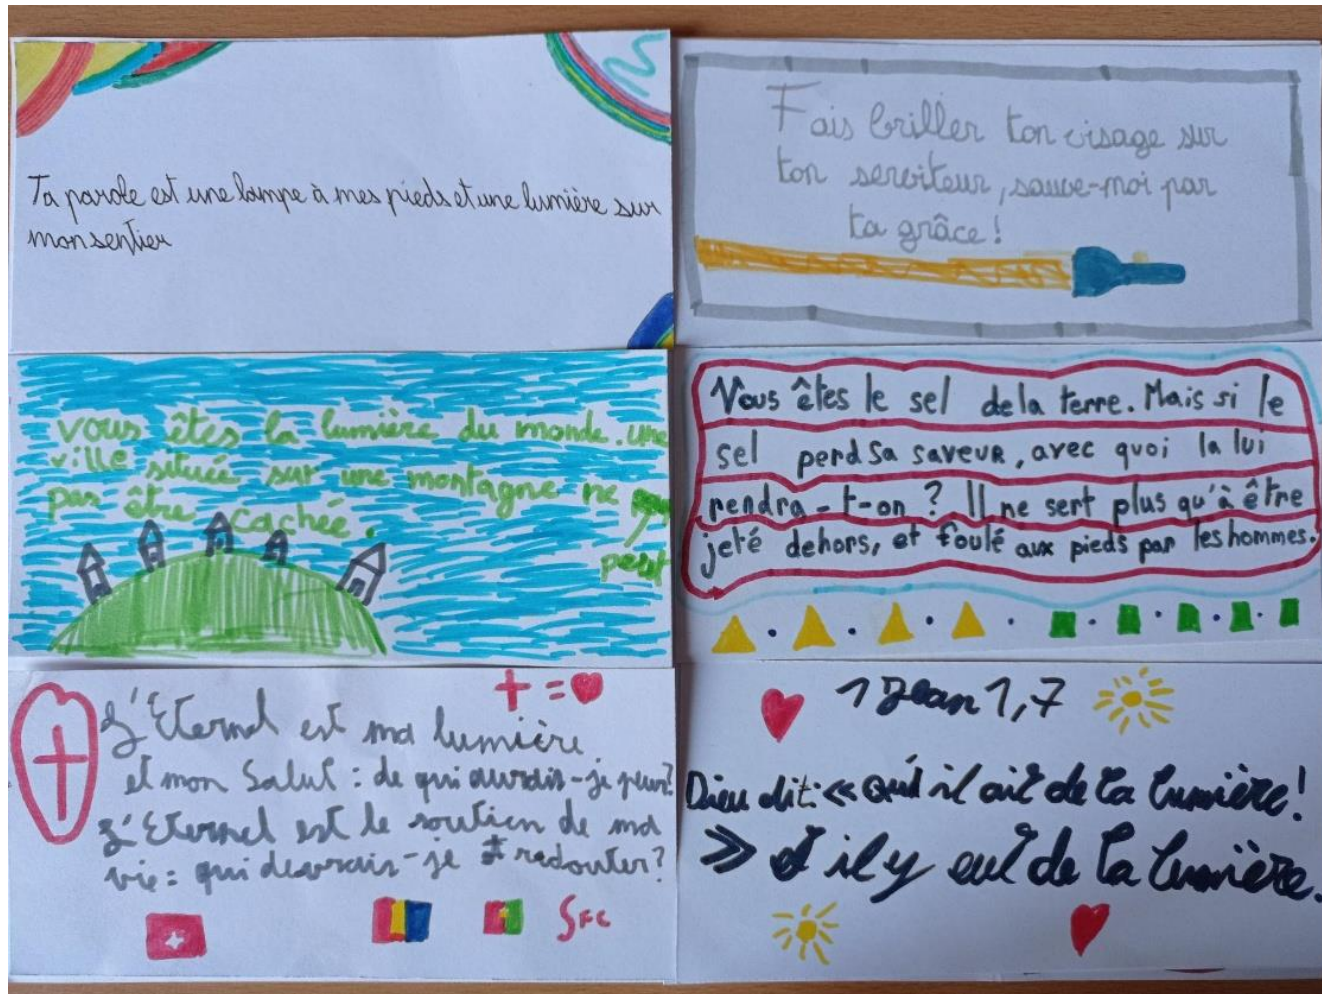 Ta parole est une lampe à mes pieds et une lumière sur
mon sentier
Fais briller ton visage sur
ton serviteur, sauve-moi par
ta grâce!
vous êtes la lumière du monde. une
ville située sur une montagne ne
peut
pas être cachée.
Vous êtes le sel de la terre. Mais si le
sel perd sa saveur, avec quoi la lui
rendra-t-on? Il ne sert plus qu'à être
jeté dehors, et foulé aux pieds par les hommes.
+ =
L'Eternel est ma lumière
et mon Salut : de qui aurais-je peur?
L'Eternel est le soutien de ma
vie : qui devrais-je redouter?
SFC
1 Jean 1,7
Dieu dit: « Qu'il ait de la lumière!
» et il y eut de la lumière.